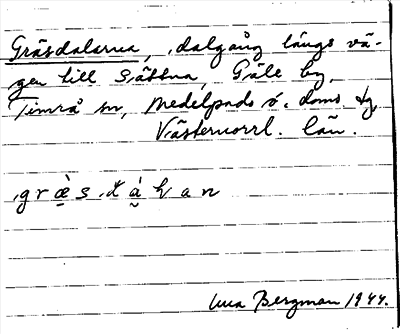 Gräsdalarna, dalgång längs vä-
gen till Sättna, Gäle by,
Timrå sn, Medelpads ö. doms. tg,
Västernorrl. län.
græ̀s dáḷan
Bergman 1944.